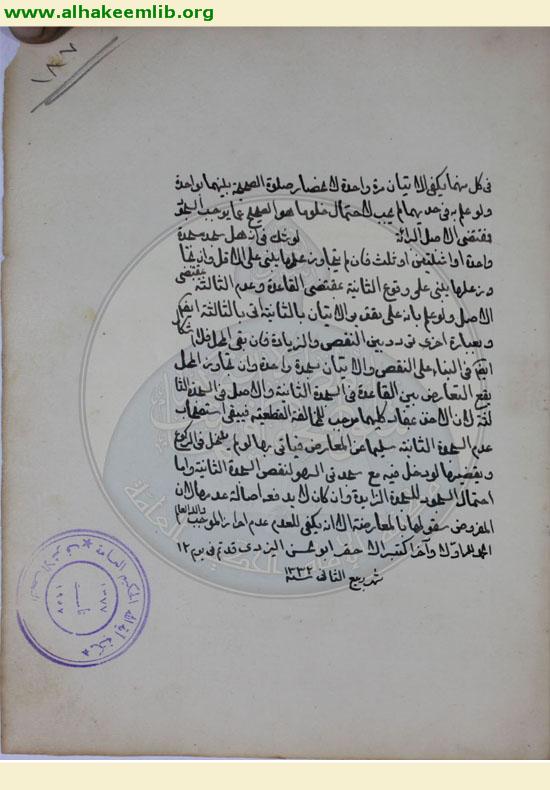 www.alhakeemlib.org
١٨٧
في كل منهما يكفي الاتيان مرة واحدة لانحصار صلوة الصحيحة بينهما بواحدة
ولو علم يجب الاحتمال خلوها هو الصحيح عما يوجب
مقتضى الاصل البرائة لو شك في انه هل سجد سجدة
واحدة او اثنتين او ثلث فان لم يتجاوز محلها بنى على الاقل وان تجاوز
عن محلها بنى على وقوع الثانية بمقتضى القاعدة وعدم الثالثة بمقتضى
الاصل ولو علم بانه على تقدير الاتيان بالثانية اتى بالثالثة ايضا
وبعبارة اخرى تردد بين النقص والزيادة فان بقى المحل فلا اشكال
ايضا في البناء على النقص والاتيان بسجدة واحدة وان تجاوز المحل
يقع التعارض بين القاعدة في السجدة الثانية والاصل في السجدة الثا
لثة لان الاخذ بمفاد كليهما موجب للمخالفة القطعية فيبقى استصحاب
عدم السجدة الثانية سليما عن المعارض فياتي بها لو لم يدخل في الركوع
ويقضيها لو دخل فيه مع سجدتي السهو لنقص السجدة الثانية واما
احتمال السجود للسجدة الزايدة وان كان لا يدفعه اصالة عدمها لان
المفروض سقوطها بالمعارضة الا انه يكفي للعدم عدم احراز الموجب والله العالم
الحمد لله اولا وآخرا كتبه الاحقر ابو الحسن اليزدي في يوم ١٢
شهر ربيع الثاني سنة ١٣٣٤
مكتبة آية الله الحكيم العامة
تأسست
١٣٧٧
١٩٥٧